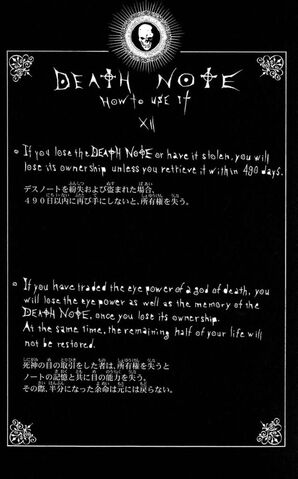 DEATH NOTE
HOW TO USE IT
XII
If you lose the DEATH NOTE or have it stolen, you will
lose its ownership unless you retrieve it within 490 days.
デスノートを紛失および盗まれた場合、
490日以内に再び手にしないと、所有権を失う。
If you have traded the eye power of a god of death, you
will lose the eye power as well as the memory of the
DEATH NOTE, once you lose its ownership.
At the same time, the remaining half of your life will
not be restored.
死神の目の取引をした者は、所有権を失うと
ノートの記憶と共に目の能力を失う。
その際、半分になった余命は元には戻らない。